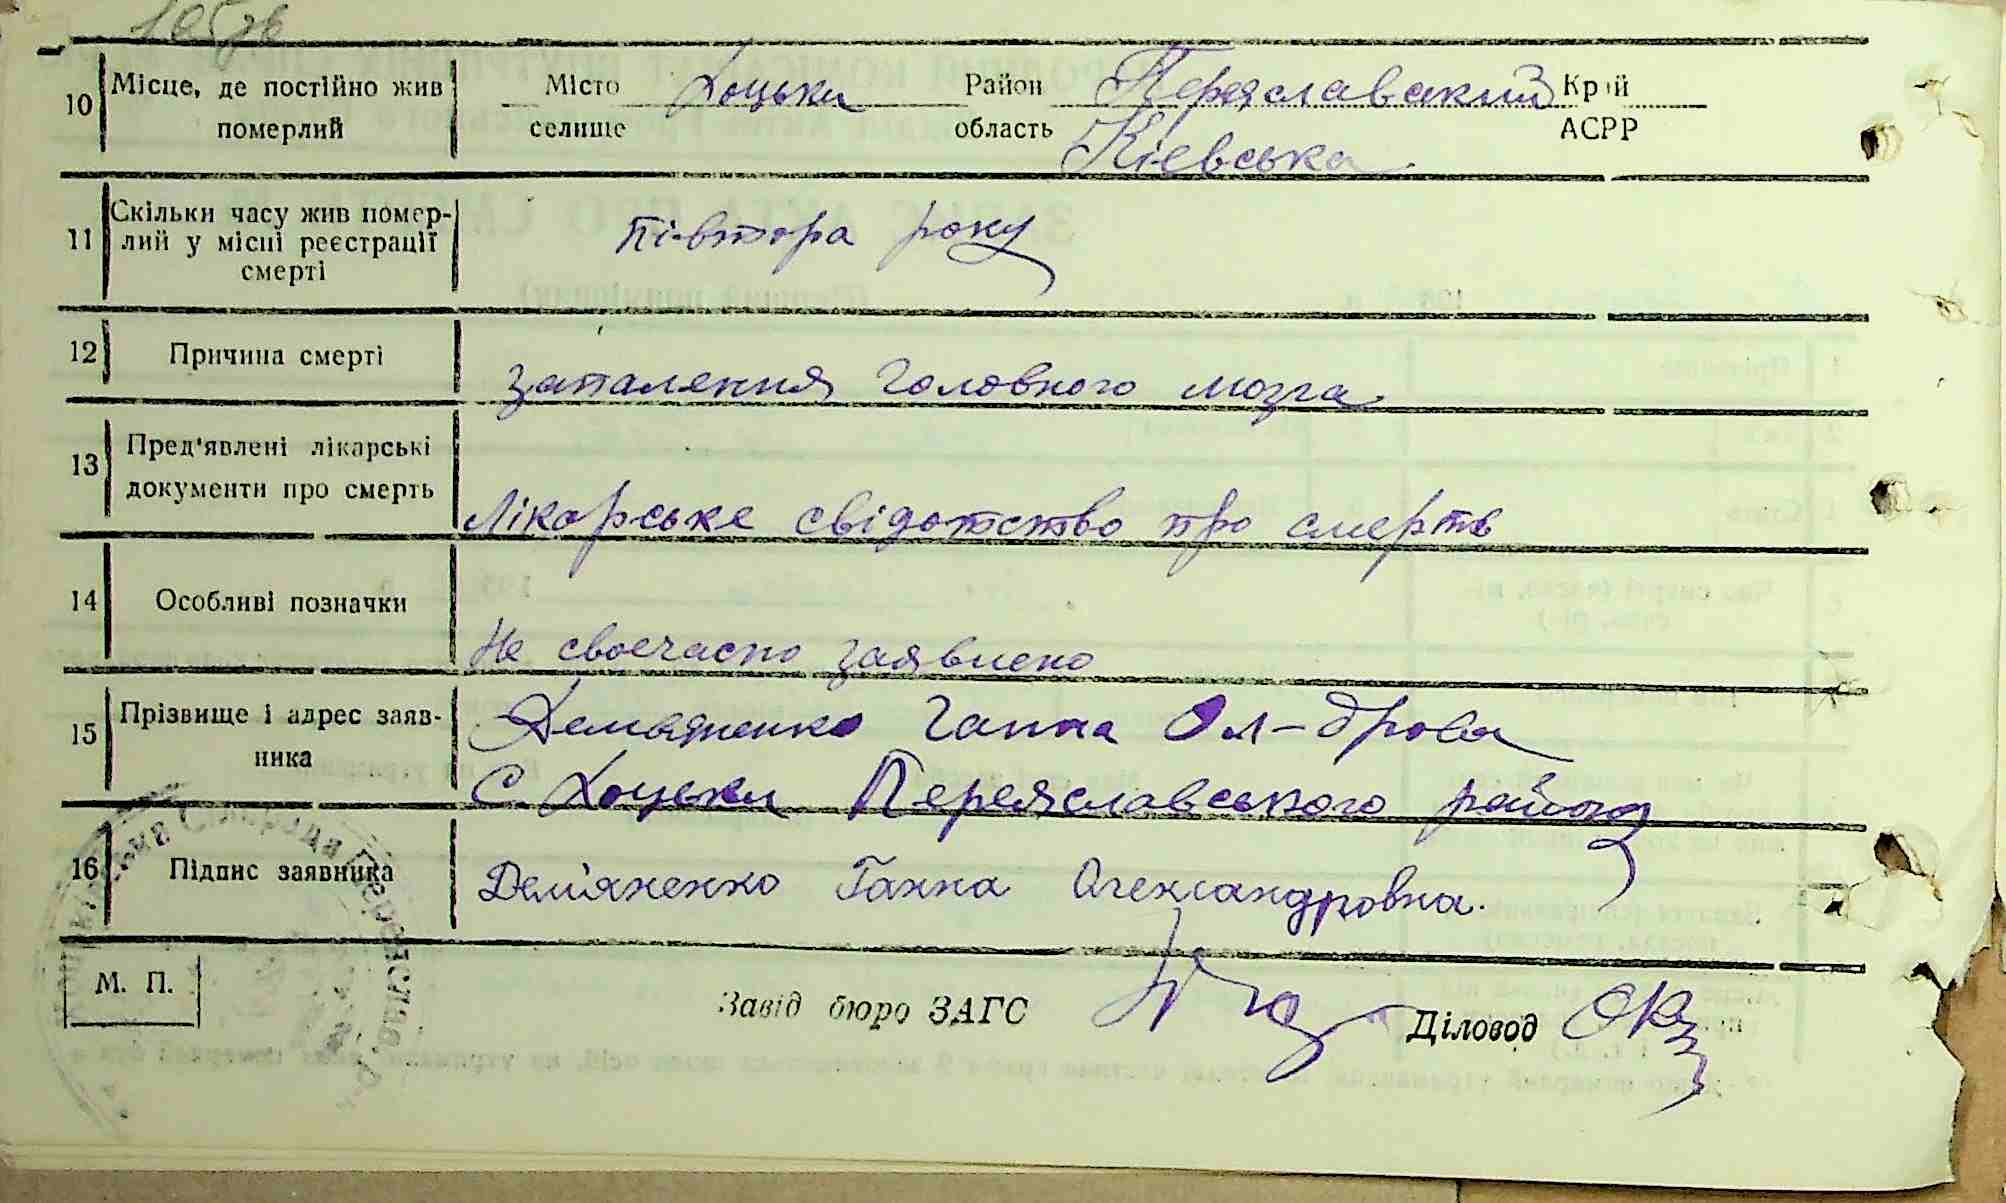 105зв
10 Місце, де постійно жив померлий Місто селище Хоцьки Район область Переяславський Київська Край АСРР
11 Скільки часу жив померлий у місці реєстрації смерті Півтора року
12 Причина смерті запалення головного мозга
13 Пред'явлені лікарські документи про смерть Лікарське свідотство про смерть
14 Особливі позначки Не своєчасно заявлено
15 Прізвище і адрес заявника Демьяненко Ганна Ол-дровна
С. Хоцьки Переяславського району
16 Підпис заявника Дем'яненко Ганна Олександровна.
М. П. Завід бюро ЗАГС Діловод